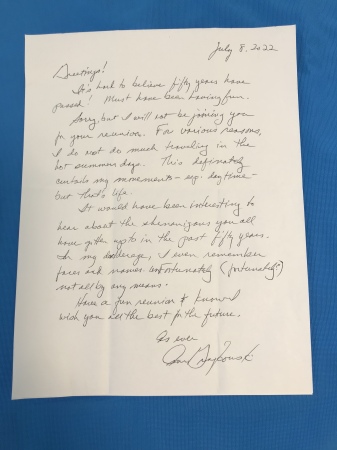 July 8, 2022
Greetings!
It's hard to believe fifty years have
passed! Must have been having fun.
Sorry but I will not be joining you
for your reunion. For various reasons,
I do not do much traveling in the
hot summer days. This definately
curtails my movements - esp. daytime -
but that's life.
It would have been interesting to
hear about the shenanigans you all
have gotten up to in the past fifty years.
In my, I even remember
faces and names unfortunately (fortunately?)
not all by any means.
Have a fun reunion & know I
wish you all the best for the future.
As ever